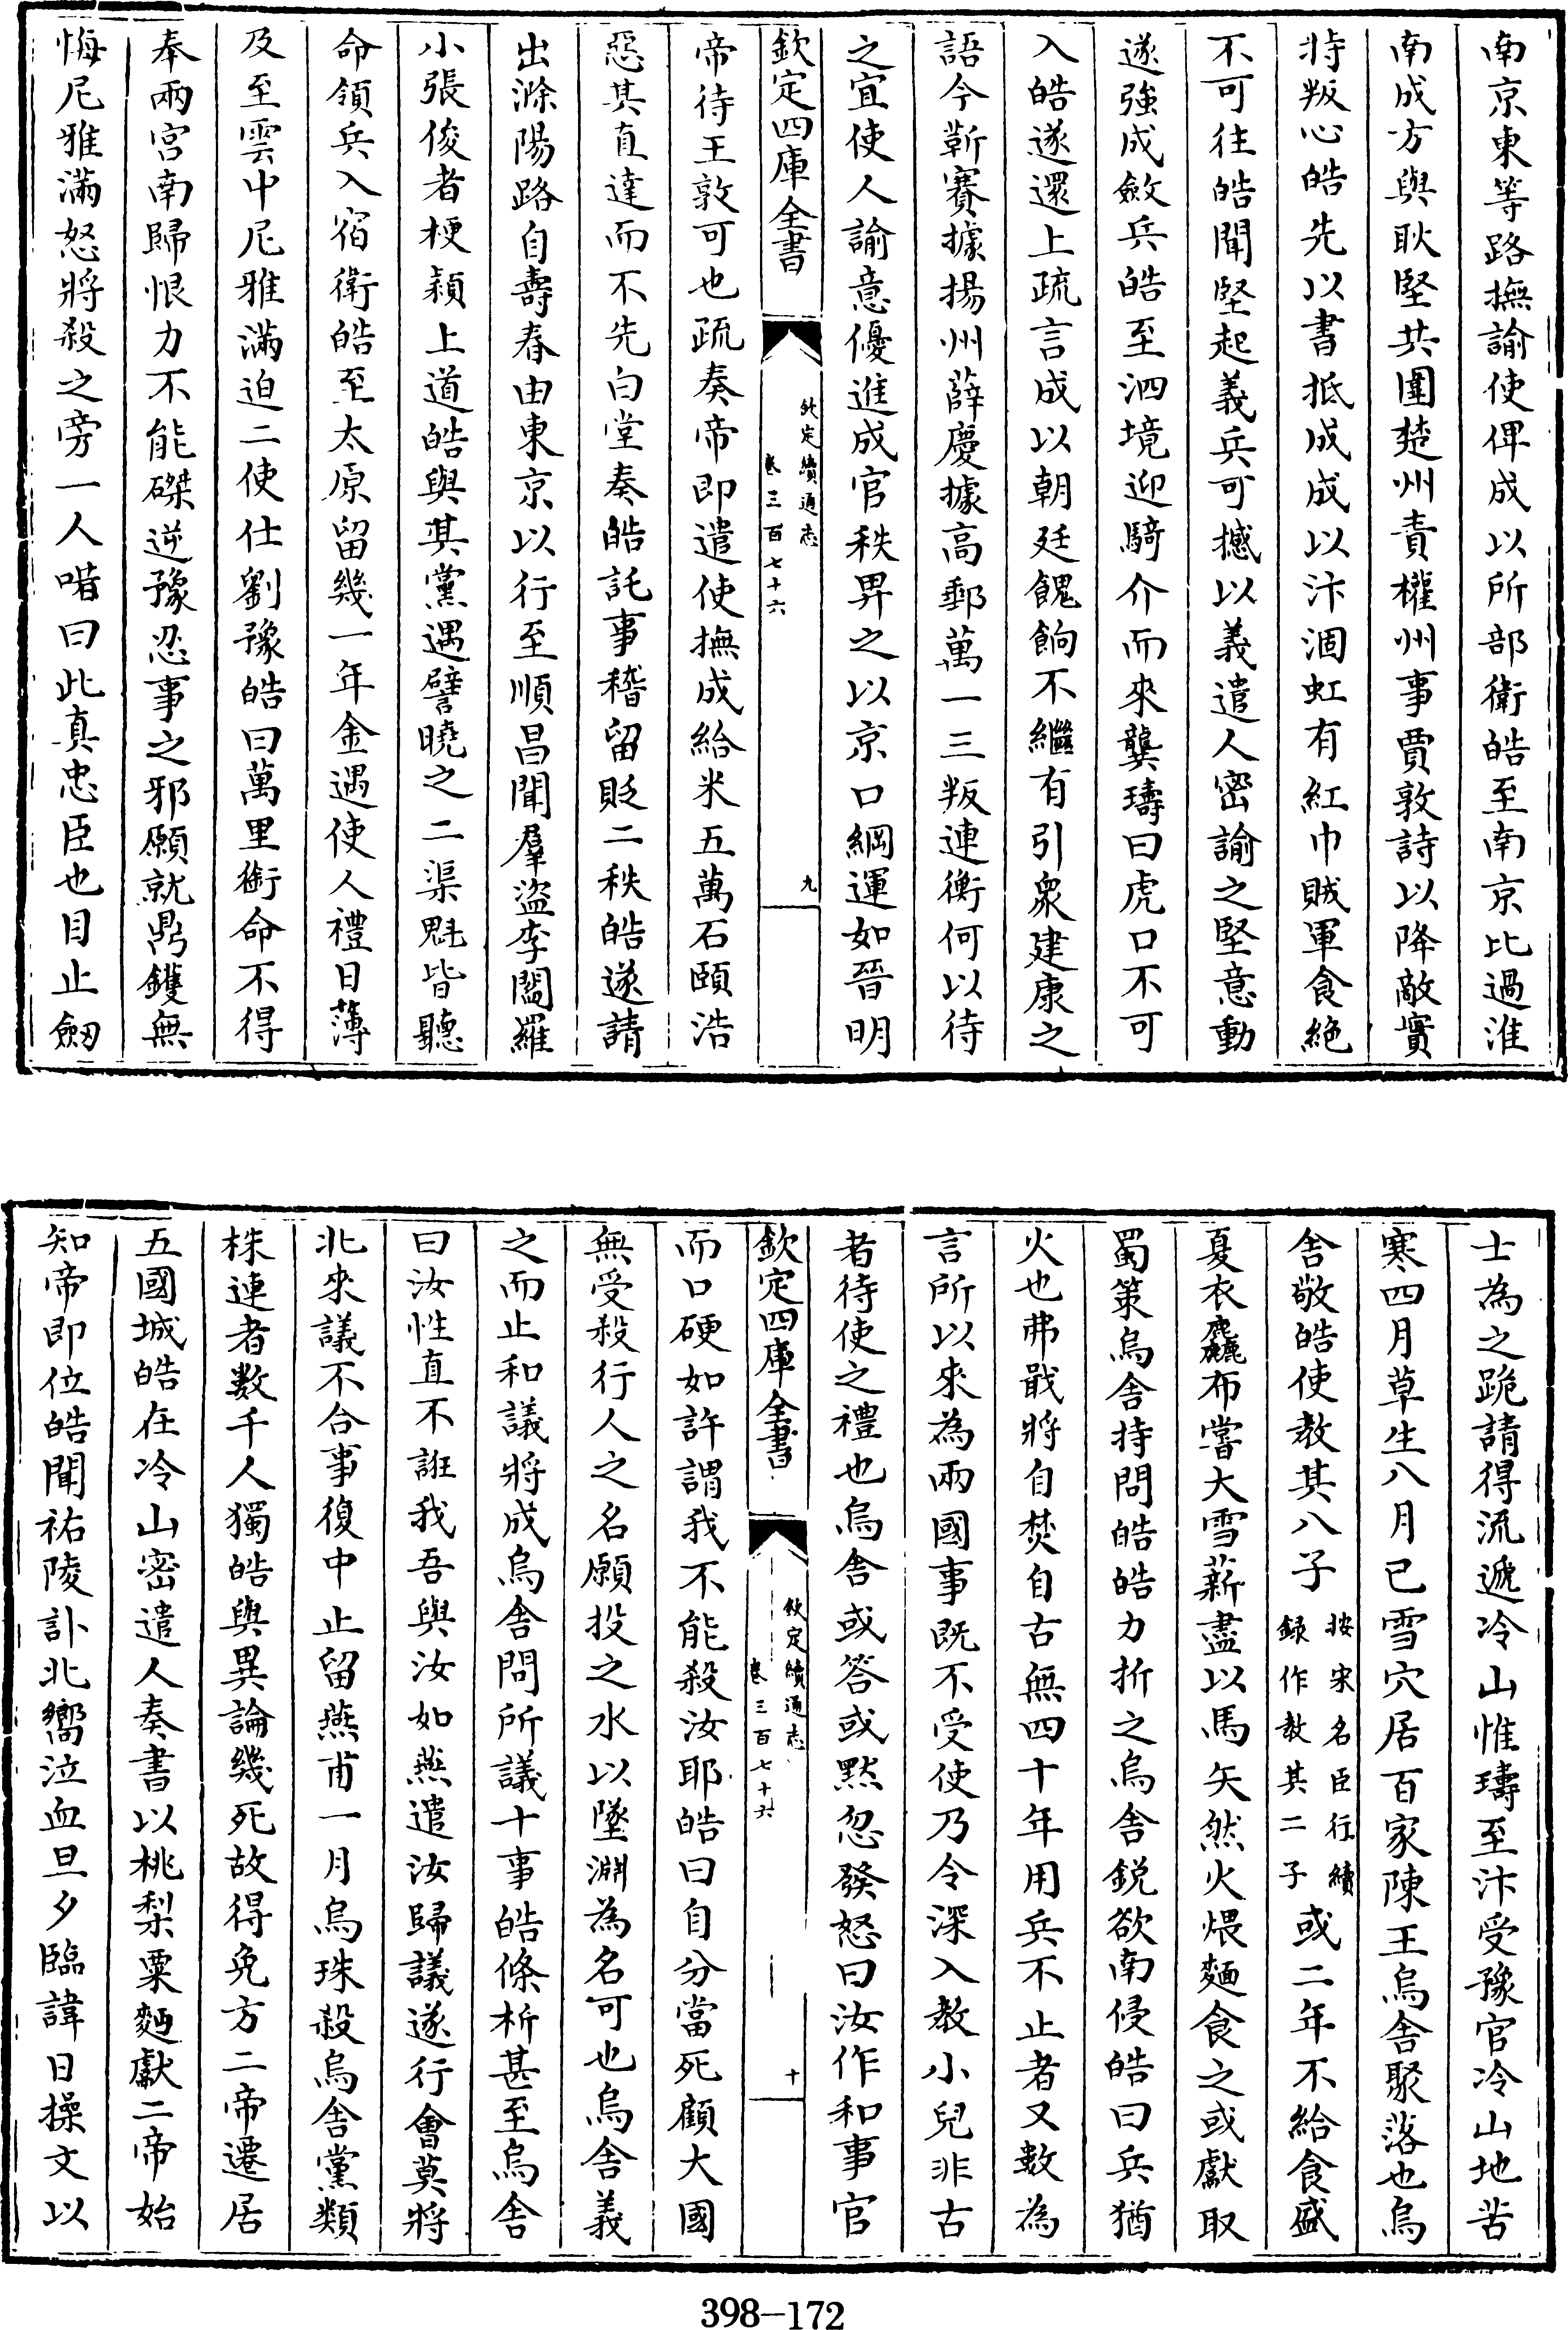 南京東等路撫諭使俾成以所部衛皓至南京比過淮
南成方與耿堅共圍楚州責權州事賈敦詩以降敵實
持叛心皓先以書抵成成以汴涸虹有紅巾賊軍食絶
不可往皓聞堅起義兵可撼以義遣人密諭之堅意動
遂強成斂兵皓至泗境迎騎介而來龔璹曰虎口不可
入皓遂還上疏言成以朝廷餽餉不繼有引衆建康之
語今靳賽據揚州薛慶據高郵萬一三叛連衡何以待
之宜使人諭意優進成官秩畀之以京口綱運如晉明
欽定四庫全書
欽定續通志
卷三百七十六
九
帝待王敦可也疏奏帝即遣使撫成給米五萬石頤浩
惡其直達而不先白堂奏皓託事稽留貶二秩皓遂請
出滁陽路自壽春由東京以行至順昌聞羣盜李閻羅
小張俊者梗潁上道皓與其黨遇譬曉之二渠魁皆聽
命領兵入宿衛皓至太原留幾一年金遇使人禮日薄
及至雲中尼雅滿迫二使仕劉豫皓曰萬里銜命不得
奉兩宮南歸恨力不能磔逆豫忍事之邪願就鼎鑊無
悔尼雅滿怒將殺之旁一人喈曰此真忠臣也目止劔
士為之跪請得流遞冷山惟璹至汴受豫官冷山地苦
寒四月草生八月已雪穴居百家陳王烏舍聚落也烏
舍敬皓使教其八子按宋名臣行續録作教其二子或二年不給食盛
夏衣麤布嘗大雪薪盡以馬矢然火煨麵食之或獻取
蜀策烏舍持問皓皓力折之烏舍鋭欲南侵皓曰兵猶
火也弗戢將自焚自古無四十年用兵不止者又數為
言所以來為兩國事既不受使乃令深入教小兒非古
者待使之禮也烏舍或答或黙忽發怒曰汝作和事官
欽定四庫全書
欽定續通志
卷三百七十六
十
而口硬如許謂我不能殺汝耶皓曰自分當死顧大國
無受殺行人之名願投之水以墜淵為名可也烏舍義
之而止和議將成烏舍問所議十事皓條析甚至烏舍
曰汝性直不誑我吾與汝如燕遣汝歸議遂行會莫將
北來議不合事復中止留燕甫一月烏珠殺烏舍黨類
株連者數千人獨皓與異論幾死故得免方二帝遷居
五國城皓在冷山密遣人奏書以桃梨栗麪獻二帝始
知帝即位皓聞祐陵訃北嚮泣血旦夕臨諱日操文以
398-172